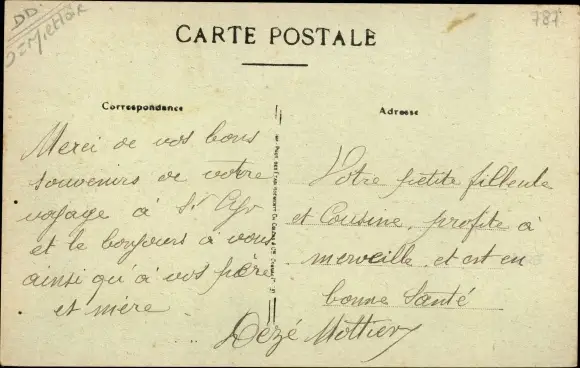 DD.
787
CARTE POSTALE
Correspondance
Adresse
Merci de vos bons
souvenirs de votre
voyage à St
et le bonjours à vous
ainsi qu'à vos père
et mère
Votre petite filleule
et Cousine, profite à
merveille et est en
bonne Santé
Dézé Mottier